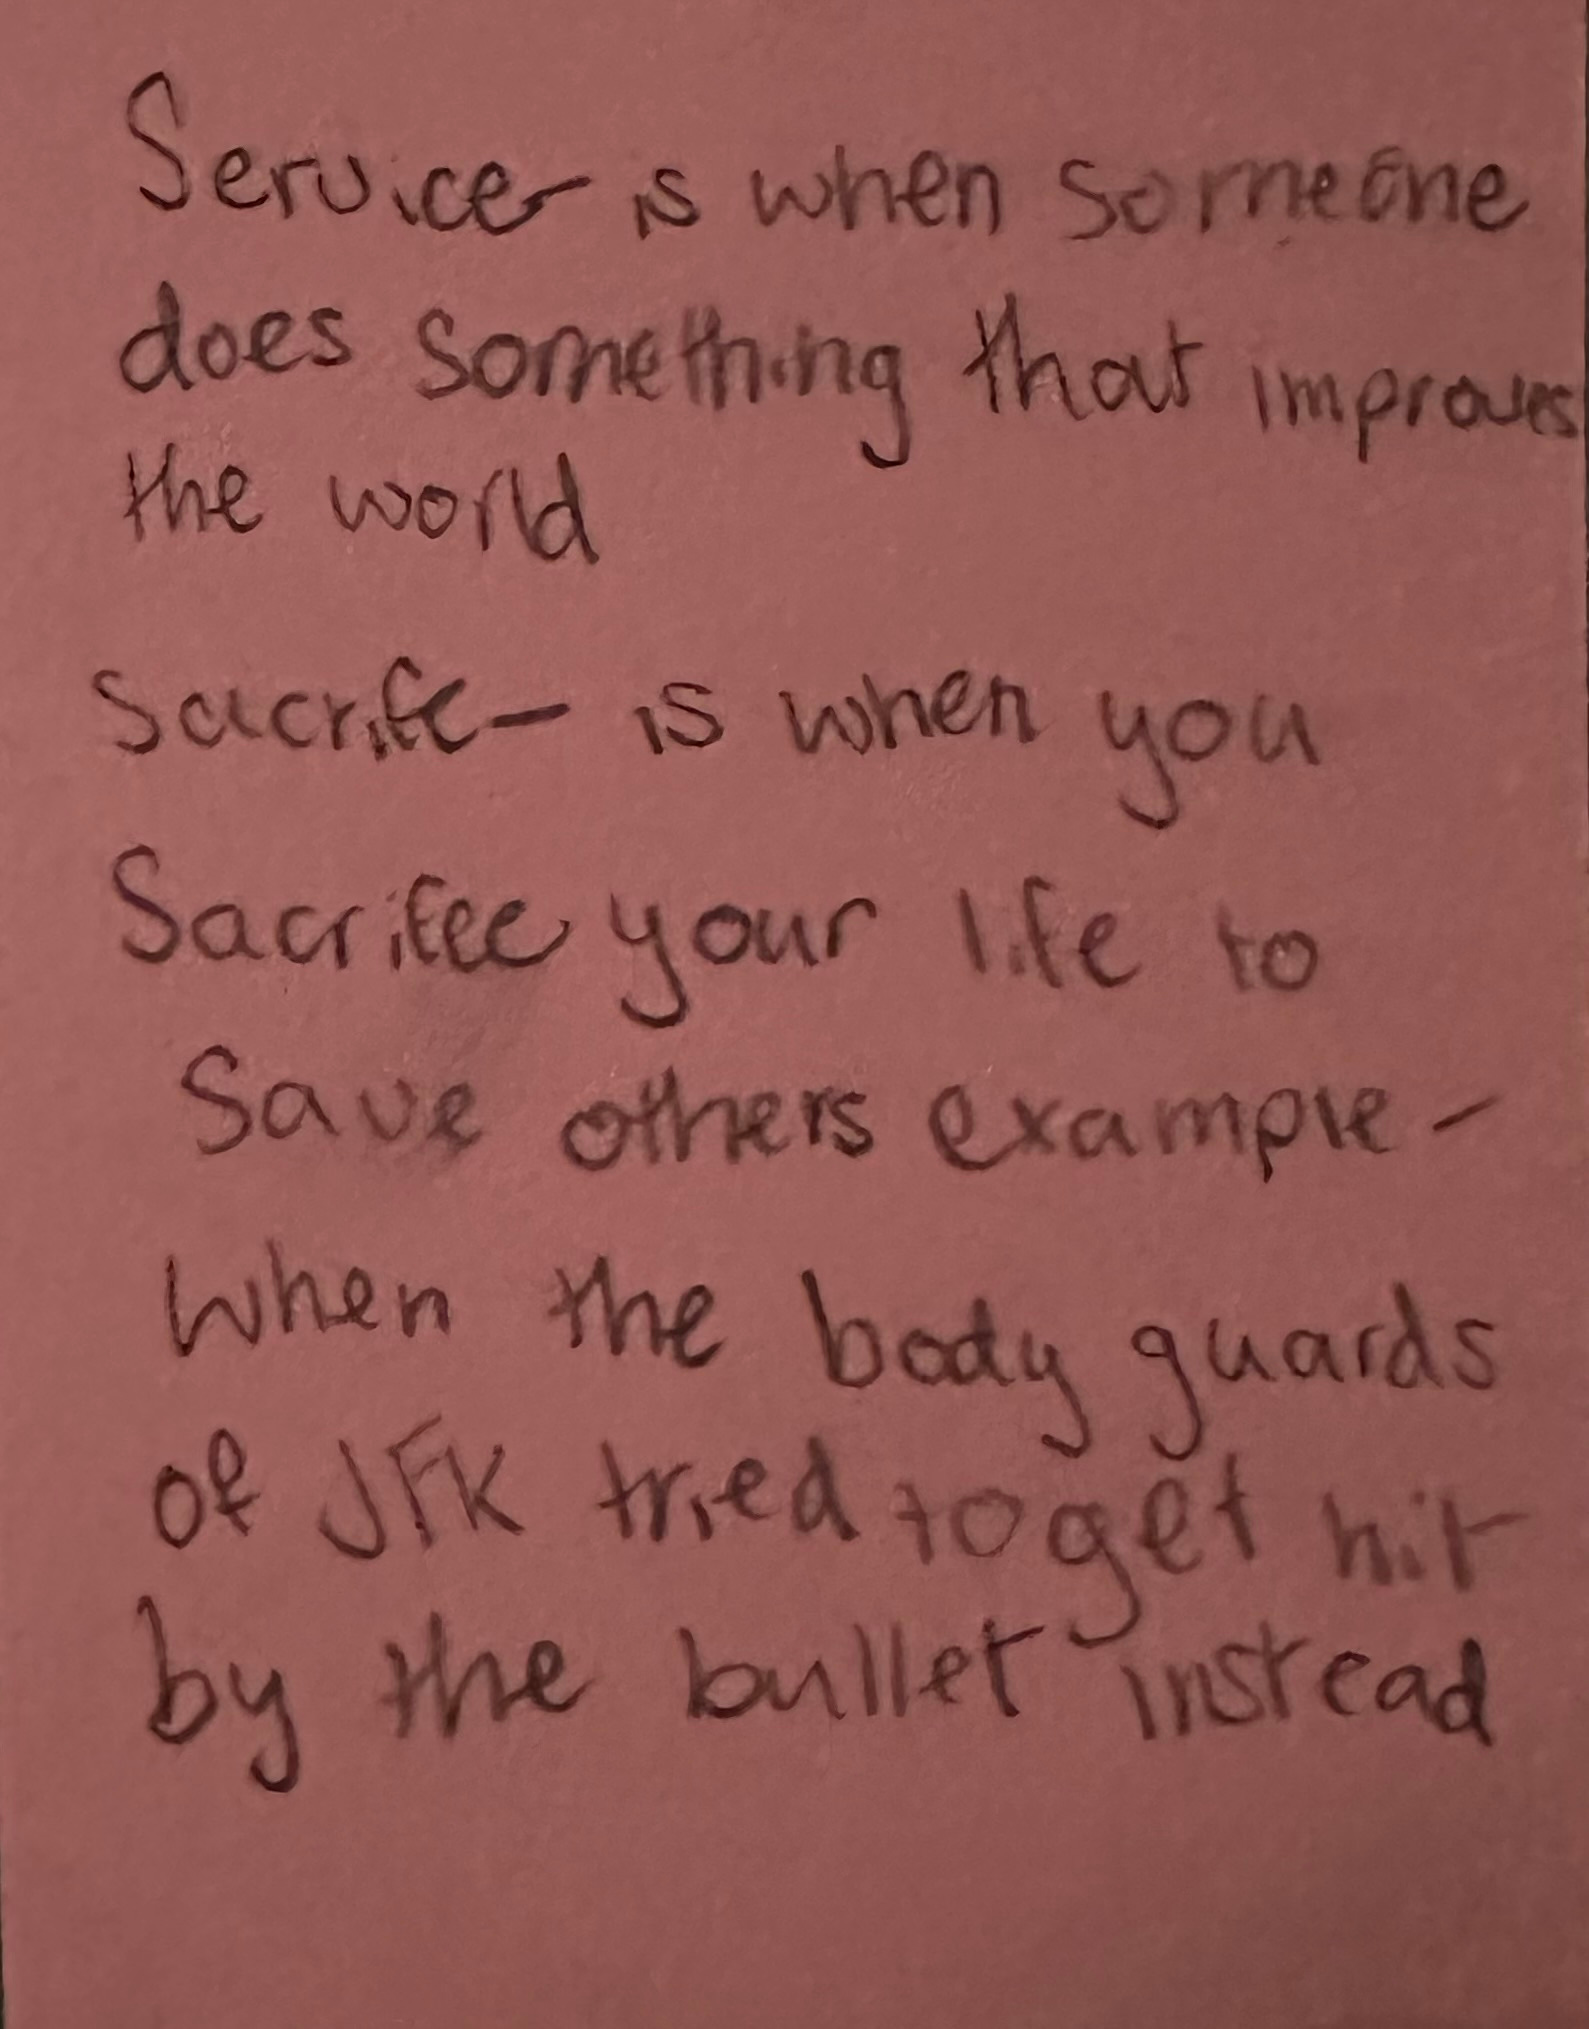 Service- is when someone
does something that improves
the world
Sacrifc- is when you
Sacrifece your life to
Save others example-
When the body guards
of JFK tried to get hit
by the bullet instead